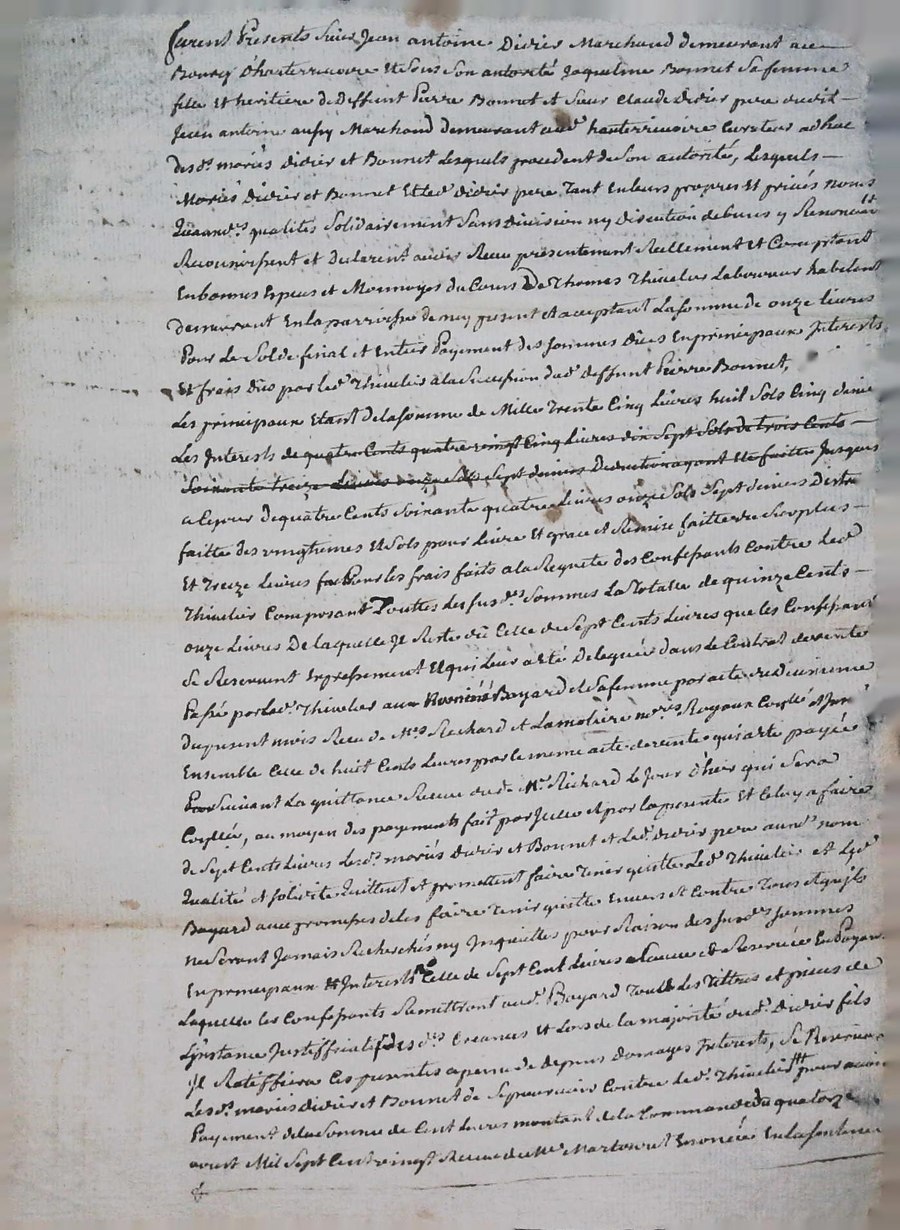 furent Presents Sieur Jean antoine Didier Marchand demeurant au
Bourg d'hauterivoire Et Sous Son autorité Jaqueline Bonnet Sa femme
fille Et heritiere de Deffunt Pierre Bonnet et Sieur Claude didier pere dudit
Jean antoine aussy Marchand demeurant aud. hauterivoire Curateur ad hoc
Desds. mariés didier et Bonnet Lesquels procedent de Son autorité, Lesquels
Mariés Didier et Bonnet Et led. didier pere Tant En leurs propres Et privés noms
Quaux ds. qualités Solidairement Sans division ny discution de biens y Renoncant
Reconnoissent et declarent avoir Receu presentement Reellement et Comptant
En bonnes Especes et Monnoyes du Cours De Thomas Thivelier Laboureur habitant
demeurant En la parroisse de present et acceptant La Somme de onze livres
Pour Le Solde final et Entier Payement des Sommes dües En principaux Interests
Et frais dus par led. Thivelier a la Succession dud. deffunt Pierre Bonnet,
Les principaux Etant de la Somme de Mille Trente Cinq Livres huit Sols Cinq denier
Les Interests de quatre Cents quatre vingt Cinq Livres dix Sept Sols de trois Cents
Soixante treize Livres onze Sols Sept deniers Deduction ayant Eté faitte Jusques
a Ce jour de quatre Cents Soixante quatre Livres onze Sols Sept deniers
faitte des vingtiemes Et Sols pour Livre Et grace et Remise faitte du Surplus
Et Treize Livres Pour les frais faits a la Requete des Confessants Contre led.
Thivelier Composant Touttes les Susds. Sommes La Totalle de quinze Cents
onze Livres De laquelle Il Reste dü Celle de Sept Cents Livres que les Confessants
Se Reservent Expressement Et qui Leur a eté Deleguée dans Le Contrat de vente
Passé par led. Thivelier aux Bayard et Sa femme par acte
du present mois Receu de Mes. Richard et Lamoliere nores. Royaux
Ensemble Celle de huit Cents Livres par le meme acte de vente qui a eté payée
Suivant La quittance Receue dud. Me. Richard Le Jour d'hier qui Sera
Conllée, au moyen des payements fait par Icelle et par la presente Et Celuy a faire
de Sept Cents Livres Lesds. mariés didier et Bonnet et Led. didier pere auxds. nom
Qualité et Solidité Quittent et promettent faire Tenir quitte Led. Thivelier et Led.
Bayard avec promesses de les faire Tenir quitte Envers et Contre Tous et quils
ne Seront Jamais Recherchés ny Inquiettés pour Raison des Susds. Sommes
En principaux Et Interests Celle de Sept Cent Livres
Laquelle les Confessants Remettront aud. Bayard Tous Les Tittres et pieces de
Lynstance Justiffiatifs des ds. Creances Et Lors de la majorité dud. Didier fils
Il Ratiffiera Ces presentes a peine de depens domages Interests, Se Reservent
Les ds. mariés didier et Bonnet de Se pourvoir Contre led. Thivelier pour avoir
Payement de la Somme de Cent Livres montant de la Commande du quatorze
avril Mil Sept Cent vingt Receue de Me Martouret Enoncée En la Sentence